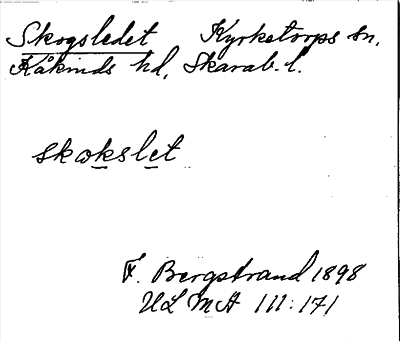 Skogsledet Kyrketorps sn.
Kåkinds hd, Skarab. l.
skωkslet
F. Bergstrand 1898
ULMA 111:171